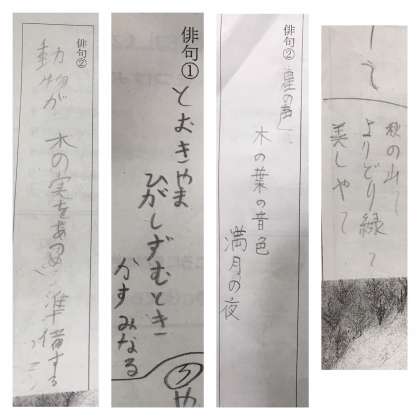 俳句②
動物が
木の実をあつめ
準備する
俳句①
とおきやま
ひがしずむとき
かすみなる
や
俳句②
星の声
木の葉の音色
満月の夜
秋の山て
よりどり緑て
美しやて